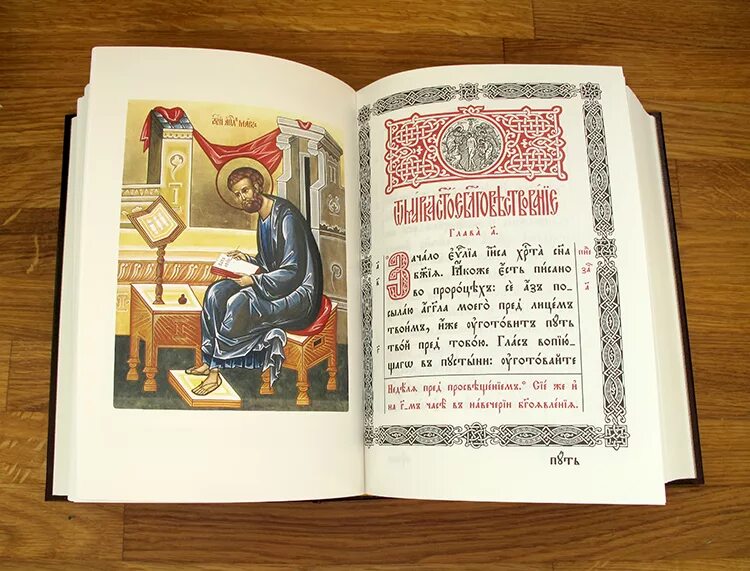 ст҃ы́й а҆пⷭ҇лъ ма́рко
Ѿ ма́рка ст҃о́е є҆ѵⷢ҇лїе благовѣствова́нїе
Глава̀ а҃.
Зача́ло є҆ѵⷢ҇лїа і҆и҃са хрⷭ҇та̀ сн҃а
бж҃їѧ. Ꙗ҆́коже є҆́сть пи́сано
во проро́цѣхъ: сѐ а҆́зъ по-
сыла́ю а҆́гг҃ла моего̀ пред̾ лице́мъ
твои́мъ, и҆́же ᲂу҆гото́витъ пꙋ́ть
тво́й пред̾ тобо́ю. Гла́съ вопїю́-
щагѡ въ пꙋсты́ни: ᲂу҆гото́вайте
Недѣ́лѧ пред̾ просвѣще́нїемъ. Сїе́ же и҆
на г҃-мъ часѣ̀ въ навече́рїи бг҃оѧвле́нїѧ.
пꙋ́ть